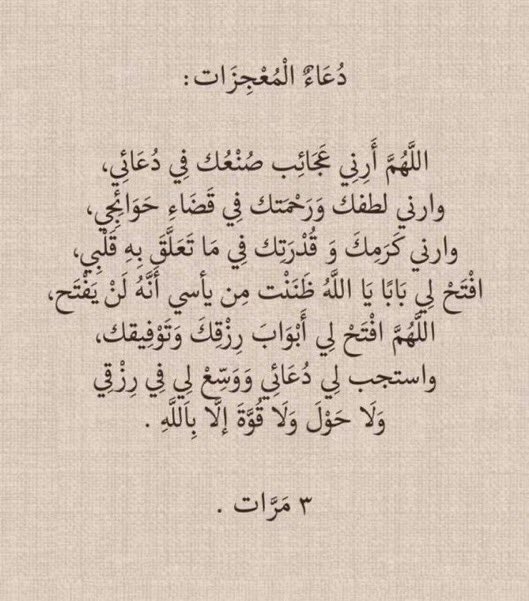 دُعَاءٌ الْمُعْجِزَات :
اللَّهُمَّ أَرِنِي عَجَائِب صُنْعُك فِي دُعَائِي،
وارني لطفك وَرَحْمَتك فِي قَضَاءِ حَوَائِجِي،
وارني كَرَمِكَ وَ قُدْرَتِك فِي مَا تَعَلَّقَ بِهِ قَلْبِي،
افْتَحْ لِي بَابًا يَا اللَّهُ ظَنَنْت مِن يأسي أَنَّهُ لَنْ يَفْتَح،
اللَّهُمَّ افْتَحْ لِي أَبْوَابَ رِزْقِكَ وَتَوْفِيقك،
واستجب لِي دُعَائِي وَوَسِّعْ لِي فِي رِزْقِي
وَلَا حَوْلَ وَلَا قُوَّةَ إلَّا بِاَللَّهِ .
٣ مَرَّات .